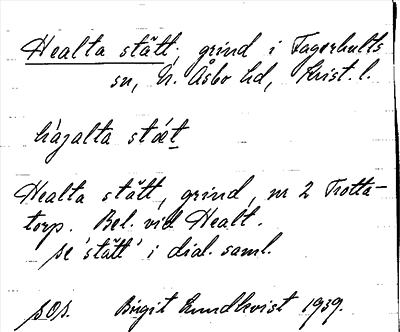 Healta stätt, grind i Fagerhults
sn, N. Åsbo hd, Krist. l.
hàʒalta stǽt
Healta stätt, grind, nr 2 Trotta-
torp. Bel. vid Healt.
se 'stätt' i dial. saml.
sOs. Birgit Lundkvist 1939.